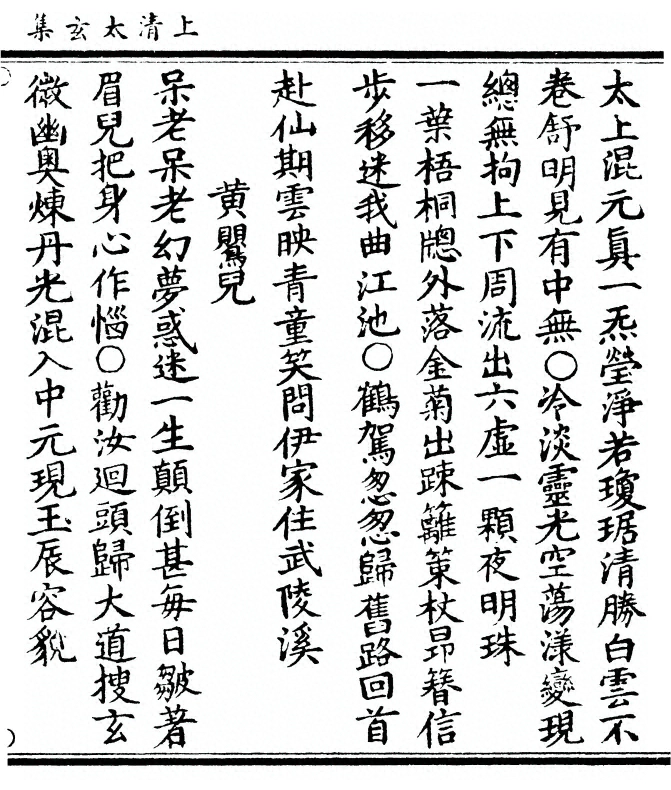 上清太玄集
太上混元眞一炁瑩淨若瓊琚清勝白雲不
卷舒明見有中無〇冷淡靈光空蕩漾變現
總無拘上下周流出六虛一顆夜明珠
一葉梧桐牕外落金菊出踈籬策杖昂簪信
步移迷我曲江池〇鶴駕怱怱歸舊路回首
赴仙期雲映青童笑問伊家住武陵溪
黄鸎兒
呆老呆老幻夢惑迷一生顛倒甚每日皺著
眉兒把身心作惱〇勸汝迴頭歸大道搜玄
微幽奥煉丹光混入中元現玉辰容貌